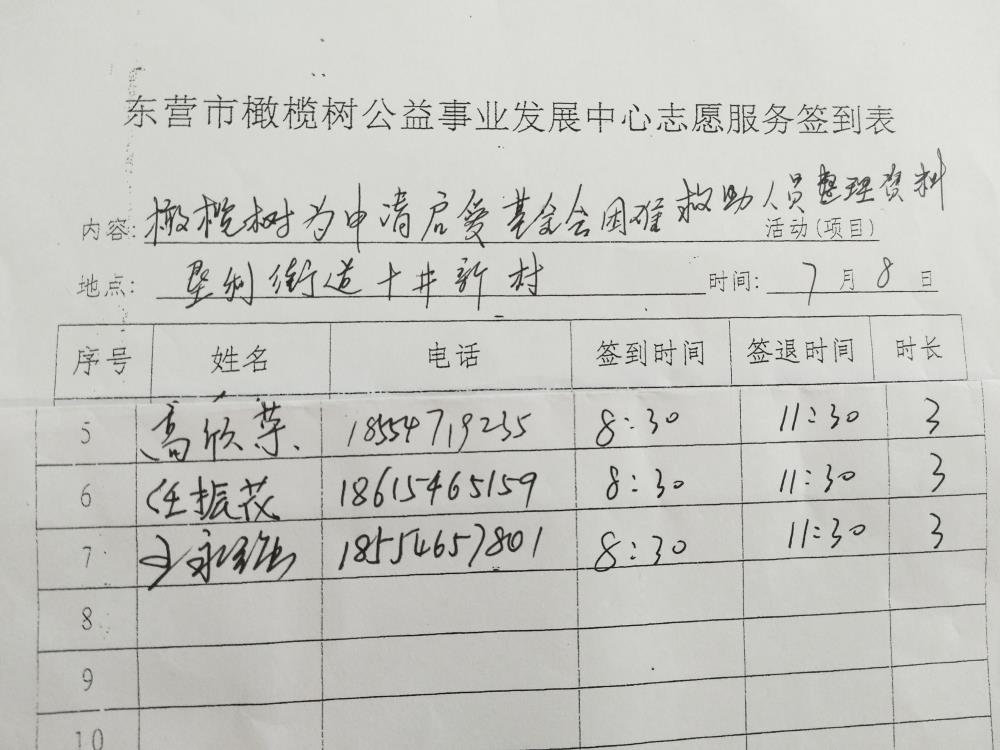 东营市橄榄树公益事业发展中心志愿服务签到表
内容: 橄榄树为申请启爱基金会困难救助人员整理资料 活动(项目)
地点: 垦利街道十井新村 时间: 7 月 8 日
序号 姓名 电话 签到时间 签退时间 时长
5 高欣荣 18554719235 8:30 11:30 3
6 任振花 18615465159 8:30 11:30 3
7 永 18554657801 8:30 11:30 3
8
9
10